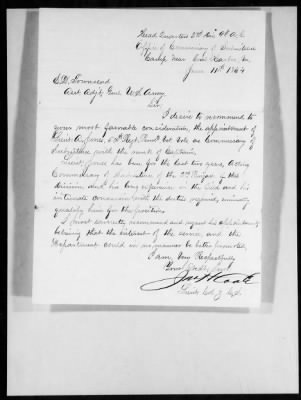 Head Quarters 2nd Div 9th A.C.
Office of Commissary of Subsistence
Camp Near Cold Harbor Va
June 11th 1864
E.D. Townsend
Asst Adjt Genl U.S. Army
Sir
I desire to recommend to
your most favorable consideration, the appointment of
Lieut Jones, Regt Vols as Commissary of
Subsistence with the rank of Captain.
Lieut. Jones has been for the last two years, Acting
Commissary of Subsistence of the 2nd Brigade of this
division and his long experience in the field and his
intimate connexion with the duties required, eminently
qualify him for the position.
I most earnestly recommend and request his appointment
believing that the interest of the service, and the
Department could in no manner be better promoted.
I am, Very Respectfully
Your Obdt. Servt.
Coale
Lieut Col & C.S.